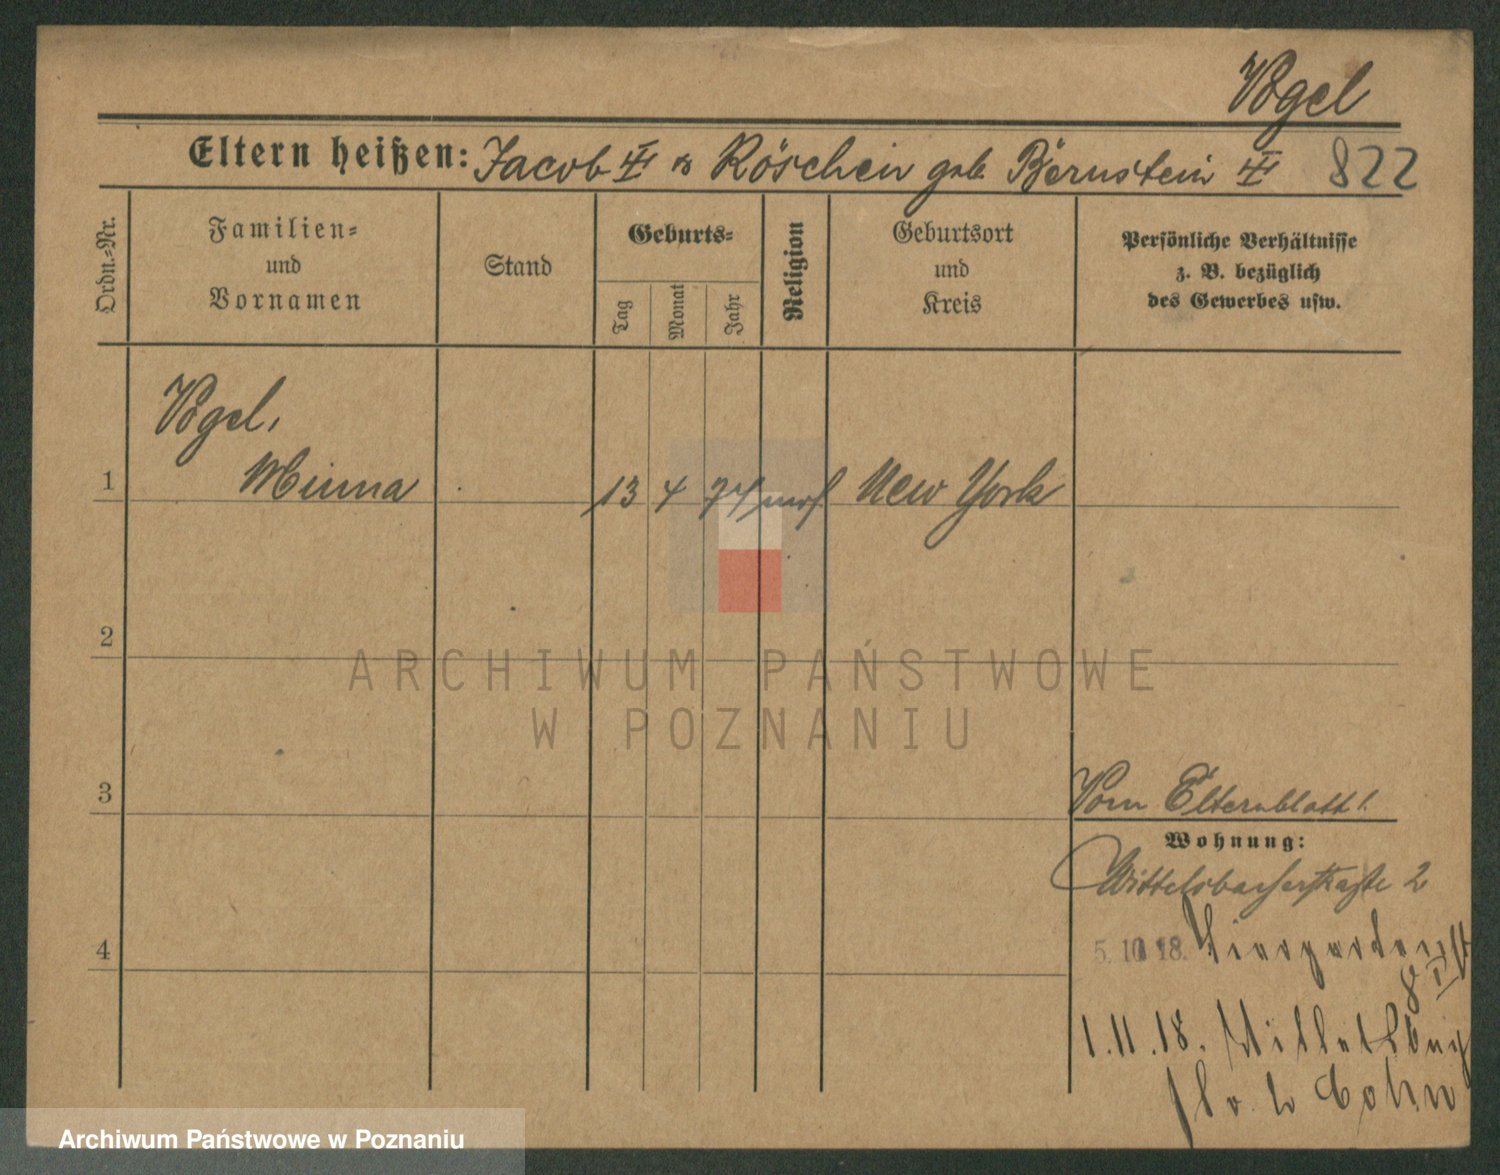 Vogel
Eltern heißen: Jacob & Röschen geb. Bernstein 822
Ordn.-Nr.
Familien- und Vornamen
Stand
Geburts-
Tag
Monat
Jahr
Religion
Geburtsort und Kreis
Persönliche Verhältnisse
z. B. bezüglich
des Gewerbes usw.
Vogel,
1 Minna 13 4 74 mos New York
2
ARCHIWUM PAŃSTWOWE
W POZNANIU
3
Vom Elternblatt!
Wohnung:
Wittelsbacherstraße 2
4
5. 10 18. Tiergartenstr
8 I
1.11.18.
b. Cohn
Archiwum Państwowe w Poznaniu